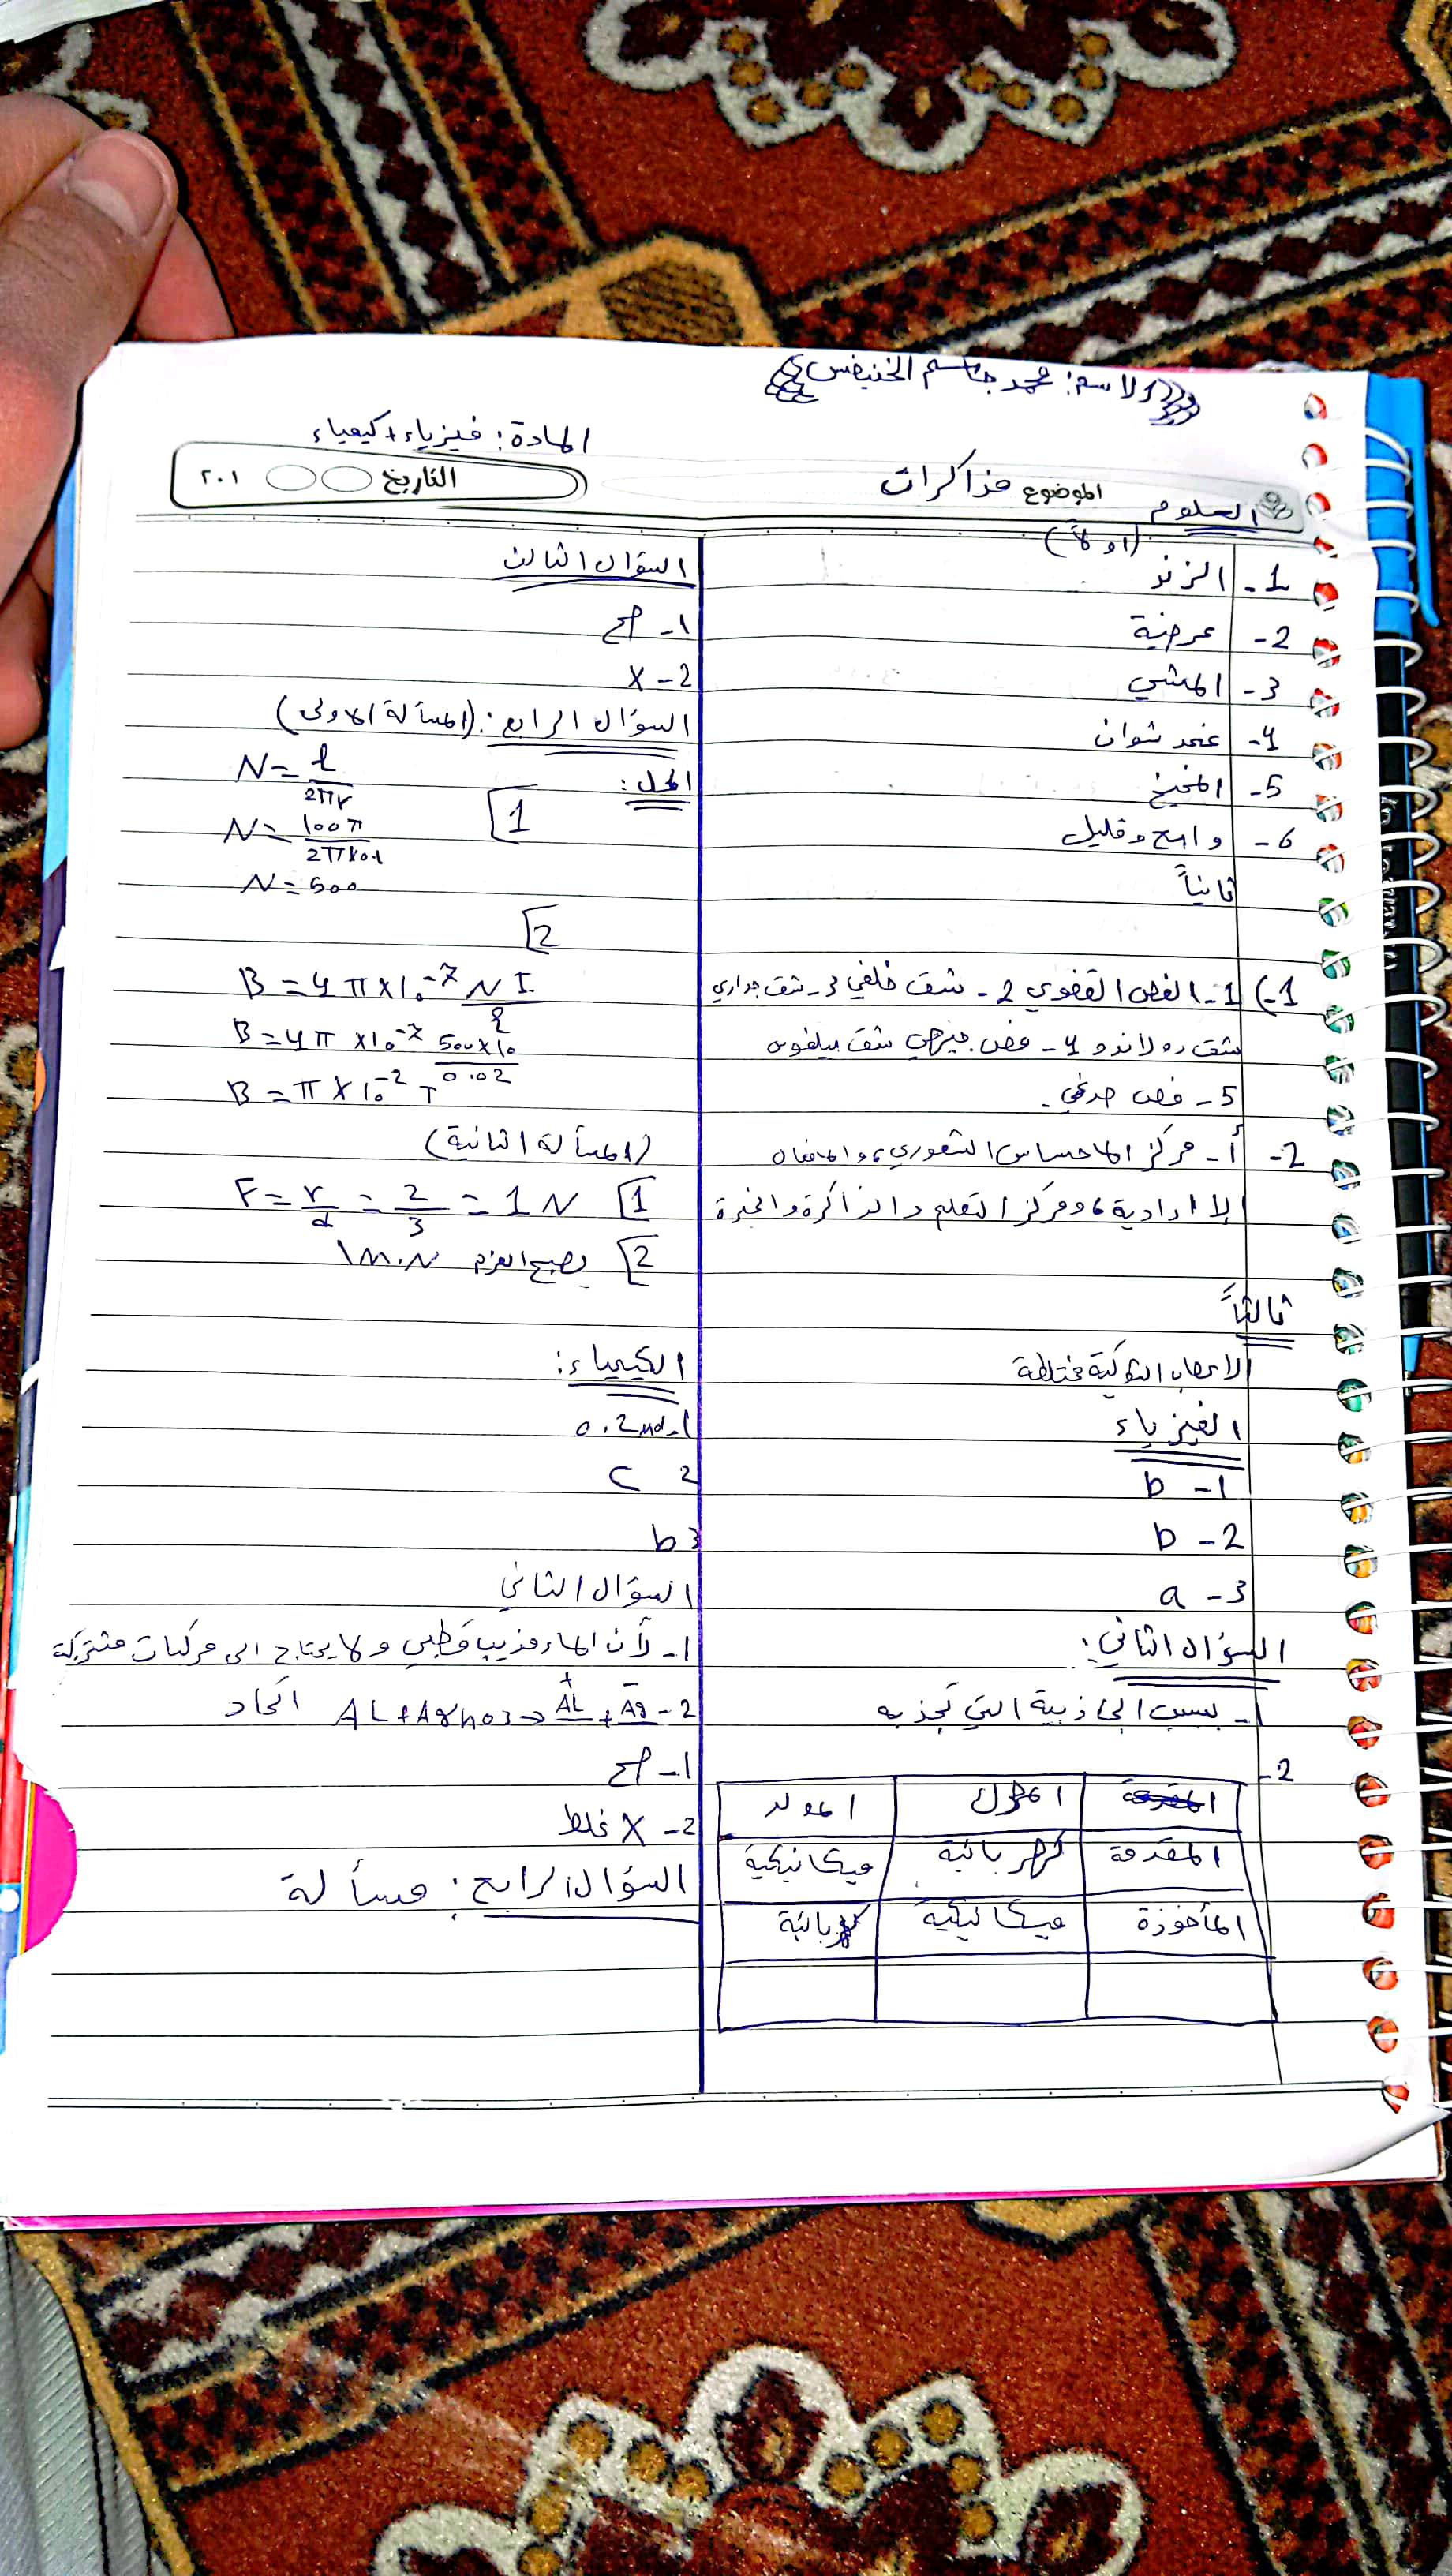 الاسم: محمد جاسم الخنيفس
المادة: فيزياء + كيمياء
الموضوع مذاكرات
التاريخ ٢٠١
العلوم
(اولاً)
1- الزند
2- عرضية
3- المشي
4- غمد شوان
5- المخيخ
6- واضح و قليل
ثانياً
1-) 1- الفص القفوي 2- شق خلفي 3- شق جداري
شق رولاندو 4- فص جبهي شق سيلفوس
5- فص صدغي.
2- أ- مركز الاحساس الشعوري، والافعال
الا ارادية، ومركز التعلم والذاكرة والخبرة
ثالثاً
الاعصاب الشوكية مختلطة
الفيزياء
1- b
2- b
3- a
السؤال الثاني:
1- بسبب الجاذبية التي تجذبه
2-
المحرك المولد
المقدمة كهربائية ميكانيكية
المأخوذة ميكانيكية كهربائية
السؤال الثالث
1- صح
2- X
السؤال الرابع: (المسألة الاولى)
الحل:
1
N = l / 2πr
N = 100π / 2π×0.1
N = 500
2
B = 4π×10⁻⁷ NI / l
B = 4π×10⁻⁷ 500×10 / 0.02
B = π×10⁻² T
(المسألة الثانية)
1 F = r/d = 2/3 = 1 N
2 يصبح العزم 1 m.N
الكيمياء:
1- 0.2 mol
2 c
3 b
السؤال الثاني
1- لأن الماء مذيب قطبي ولا يحتاج الى مركبات مشتركة
2- AL + AgNO3 → AL + Ag
1- صح
2- X غلط
السؤال الرابع: مسألة